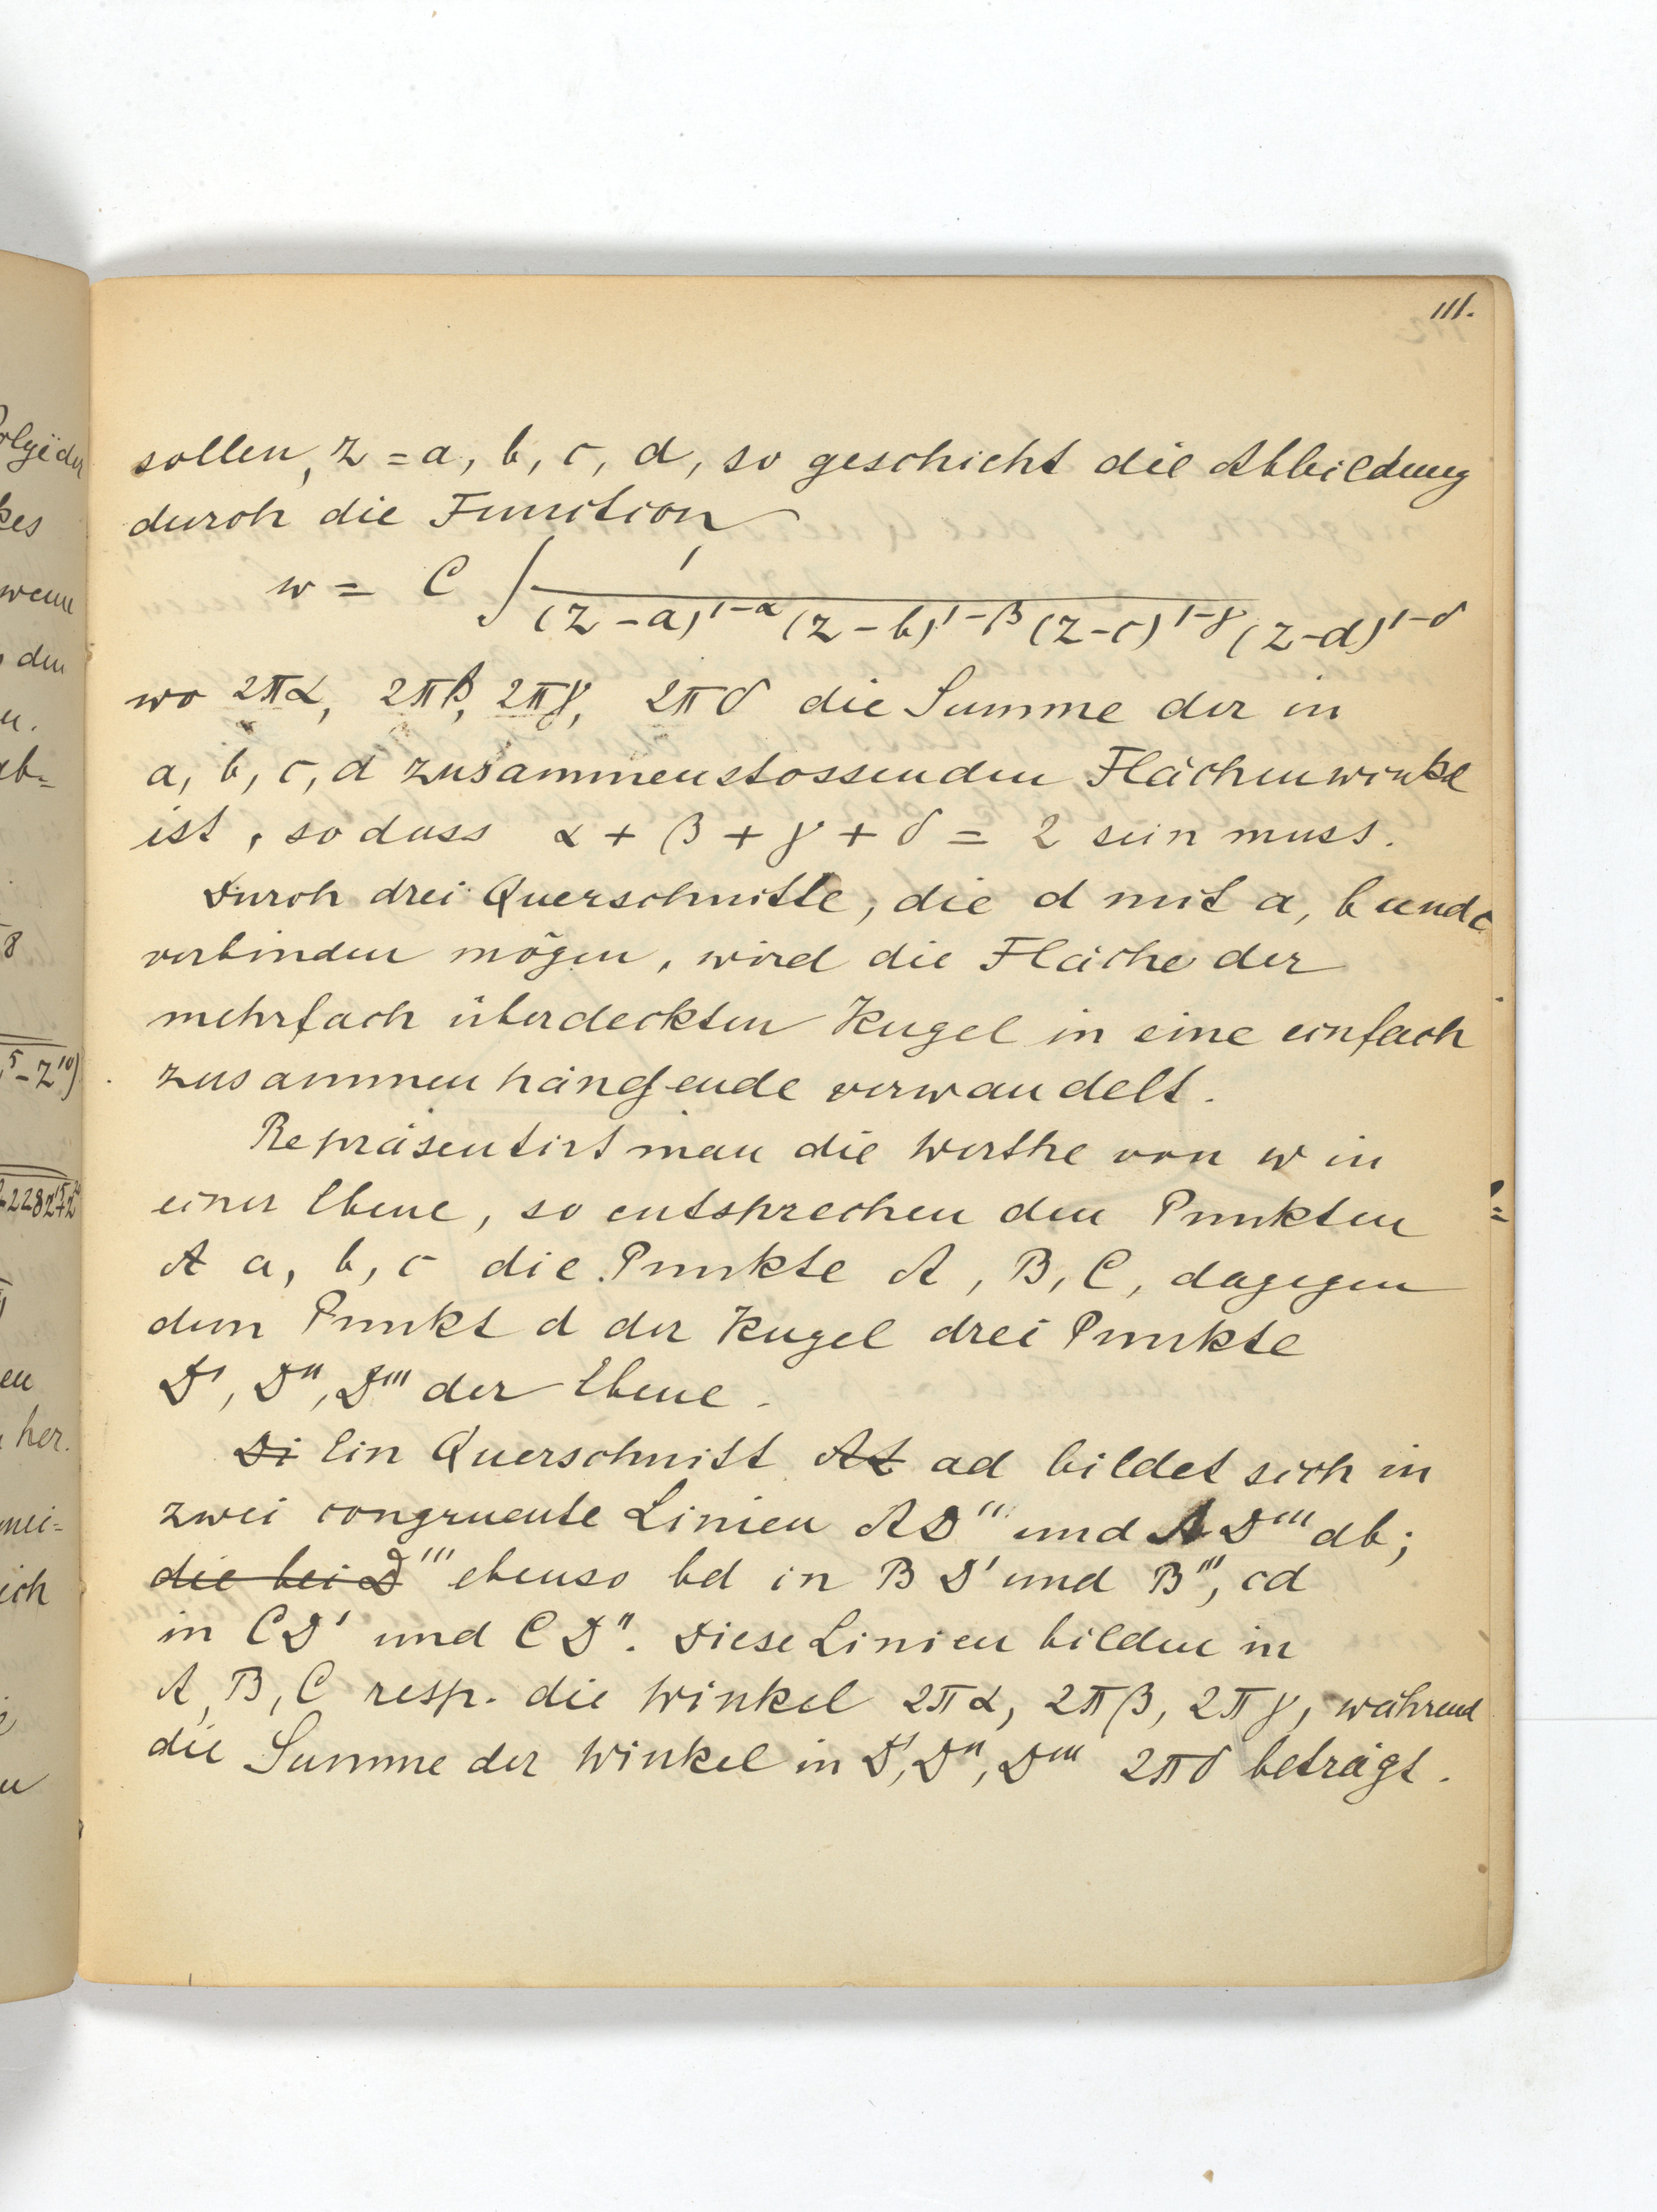 111.
sollen, z = a, b, c, d, so geschieht die Abbildung
durch die Function
w = C ∫ 1 / (z-a)^{1-α} (z-b)^{1-β} (z-c)^{1-γ} (z-d)^{1-δ}
wo 2πα, 2πβ, 2πγ, 2πδ die Summe der in
a, b, c, d zusammenstossenden Flächenwinkel
ist, so dass α + β + γ + δ = 2 sein muss.
Durch drei Querschnitte, die d mit a, b und c
verbinden mögen, wird die Fläche der
mehrfach überdeckten Kugel in eine einfach
zusammenhängende verwandelt.
Repräsentirt man die Werthe von w in
einer Ebene, so entsprechen den Punkten
A a, b, c die Punkte A, B, C, dagegen
dem Punkt d der Kugel drei Punkte
D', D'', D''' der Ebene.
Di Ein Querschnitt At ad bildet sich in
zwei congruente Linien AD'' und AD''' ab;
die bei D''' ebenso bd in BD' und B''', cd
in CD' und CD''. Diese Linien bilden in
A, B, C resp. die Winkel 2πα, 2πβ, 2πγ, während
die Summe der Winkel in D', D'', D''' 2πδ beträgt.